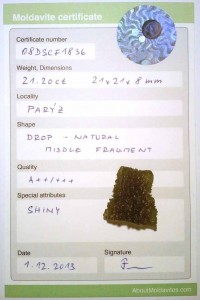 Moldavite certificate
Certificate number
08DSCF1836
Weight, Dimensions
21.20ct 21x21x8 mm
Locality
PAŘÍZ
Shape
DROP - NATURAL
MIDDLE FRAGMENT
Quality
A++/+++
Special attributes
SHINY
Date
Signature
1.12.2013
AboutMoldavites.com